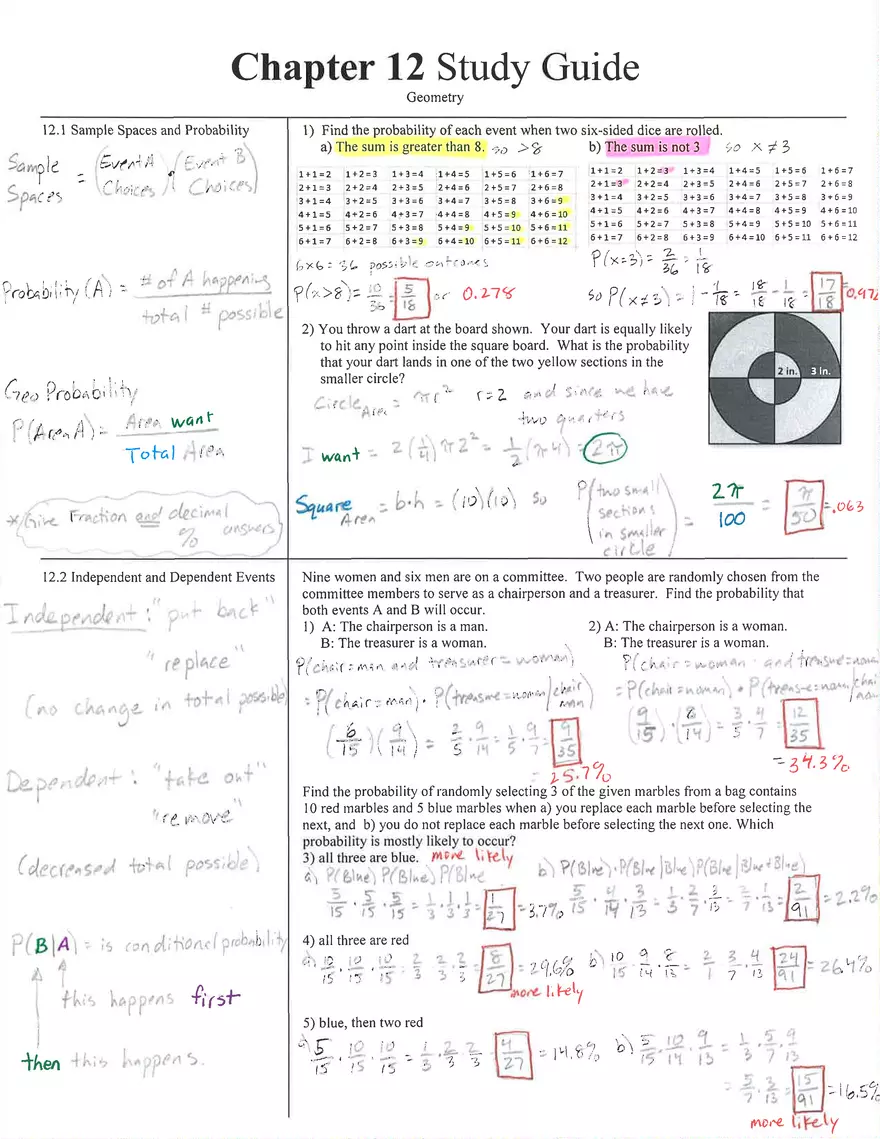 Chapter 12 Study Guide
Geometry
12.1 Sample Spaces and Probability
Sample Spaces = (Event A Choices) • (Event B Choices)
Probability (A) = # of A happening / total # possible
Geo Probability
P(Area A) = Area want / Total Area
*Give Fraction and decimal
% answers
1) Find the probability of each event when two six-sided dice are rolled.
a) The sum is greater than 8. so >8
b) The sum is not 3 so x ≠ 3
1+1=2 1+2=3 1+3=4 1+4=5 1+5=6 1+6=7
2+1=3 2+2=4 2+3=5 2+4=6 2+5=7 2+6=8
3+1=4 3+2=5 3+3=6 3+4=7 3+5=8 3+6=9
4+1=5 4+2=6 4+3=7 4+4=8 4+5=9 4+6=10
5+1=6 5+2=7 5+3=8 5+4=9 5+5=10 5+6=11
6+1=7 6+2=8 6+3=9 6+4=10 6+5=11 6+6=12
1+1=2 1+2=3 1+3=4 1+4=5 1+5=6 1+6=7
2+1=3 2+2=4 2+3=5 2+4=6 2+5=7 2+6=8
3+1=4 3+2=5 3+3=6 3+4=7 3+5=8 3+6=9
4+1=5 4+2=6 4+3=7 4+4=8 4+5=9 4+6=10
5+1=6 5+2=7 5+3=8 5+4=9 5+5=10 5+6=11
6+1=7 6+2=8 6+3=9 6+4=10 6+5=11 6+6=12
6×6=36 possible outcomes
P(x>8)= 10/36 = 5/18 or 0.278
P(x=3)= 2/36 = 1/18
so P(x≠3)= 1 - 1/18 = 18/18 - 1/18 = 17/18 = 0.972
2) You throw a dart at the board shown. Your dart is equally likely
to hit any point inside the square board. What is the probability
that your dart lands in one of the two yellow sections in the
smaller circle?
2 in. 3 in.
Circle Area = πr² r=2 and since we have
two quarters
I want = 2(1/4)π2² = 1/2(π4) = 2π
Square Area = b·h = (10)(10) so P(two small sections in smaller circle) = 2π/100 = π/50 = .063
12.2 Independent and Dependent Events
Independent: "put back"
"replace"
(no change in total possible)
Dependent: "take out"
"remove"
(decreased total possible)
P(B|A) = is conditional probability
this happens first
then this happens.
Nine women and six men are on a committee. Two people are randomly chosen from the
committee members to serve as a chairperson and a treasurer. Find the probability that
both events A and B will occur.
1) A: The chairperson is a man.
B: The treasurer is a woman.
P(chair=man and treasurer=woman)
= P(chair=man) • P(treasure=woman|chair man)
(6/15)(9/14) = 2/5 · 9/14 = 1/5 · 9/7 = 9/35
= 25.7%
2) A: The chairperson is a woman.
B: The treasurer is a woman.
P(chair=woman and treasure=woman
= P(chair=woman) • P(treasure=woman/chair woman
(9/15)·(8/14) = 3/5 · 4/7 = 12/35
= 34.3%
Find the probability of randomly selecting 3 of the given marbles from a bag contains
10 red marbles and 5 blue marbles when a) you replace each marble before selecting the
next, and b) you do not replace each marble before selecting the next one. Which
probability is mostly likely to occur?
3) all three are blue. more likely
a) P(Blue) P(Blue) P(Blue
5/15 · 5/15 · 5/15 = 1/3 · 1/3 · 1/3 = 1/27 = 3.7%
b) P(Blue)·P(Blue|Blue)P(Blue|Blue+Blue)
5/15 · 4/14 · 3/13 = 1/3 · 2/7 · 3/13 = 2/7 · 1/13 = 2/91 = 2.2%
4) all three are red
a) 10/15 · 10/15 · 10/15 = 2/3 · 2/3 · 2/3 = 8/27 = 29.6%
more likely
b) 10/15 · 9/14 · 8/13 = 2/1 · 3/7 · 4/13 = 24/91 = 26.4%
5) blue, then two red
a) 5/15 · 10/15 · 10/15 = 1/3 · 2/3 · 2/3 = 4/27 = 14.8%
b) 5/15 · 10/14 · 9/13 = 1/3 · 5/7 · 9/13
= 5/7 · 3/13 = 15/91 = 16.5%
more likely